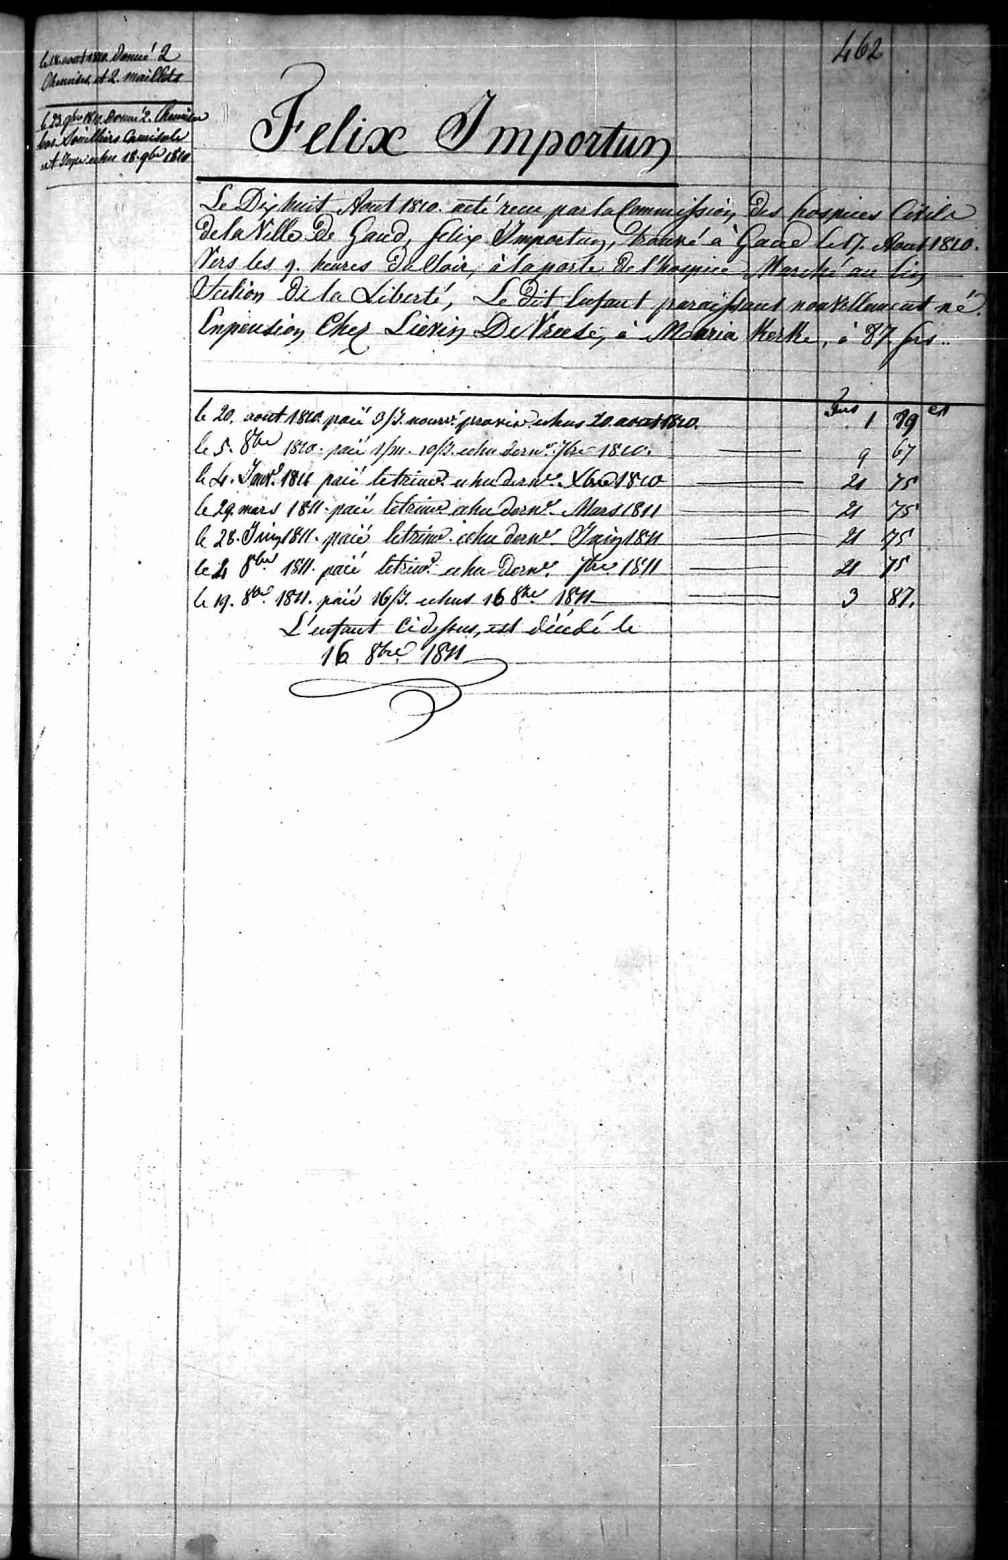 462
le 18. aout 1810 donné 2
Chemises et 2. maillots
le 23 9bre 1810. donné 2. Chemises
bas Souilliers Camisole
et Jupe echu 18. 9bre 1810
Felix Importun
Le Dix huit Aout 1810. a eté recu par la Commission des hospices Civils
de la Ville De Gand, felix Importun, trouvé à Gand le 17. Aout 1810.
Vers les 9. heures du Soir, à la porte de l'hospice Marché au lin
Section De la Liberté, Le dit Enfant paraissant nouvellement né.
Enpension Chez Liévin De Vreese, à Maria Kerke, à 87 frs..
le 20. aout 1810 paié 3/J. nourre provire echus 20 aout 1810. frs 1 79 cs
le 5. 8bre 1810. paié 1/m. 10/J. echu dernr 7bre 1810. 9 67
le 4. Janr 1811 paié le trimre echu dernr Xbre 1810 21 75
le 29. mars 1811. paié le trimre echu dernr Mars 1811 21 75
le 28. Juin 1811. paié le trimre echu dernr Juin 1811 21 75
le 4 8bre 1811. paié le trimre echu Dernr 7bre 1811 21 75
le 19. 8bre 1811. paié 16/J. echus 16 8bre 1811 3 87.
L'enfant Cidessus, est décédé le
16 8bre 1811